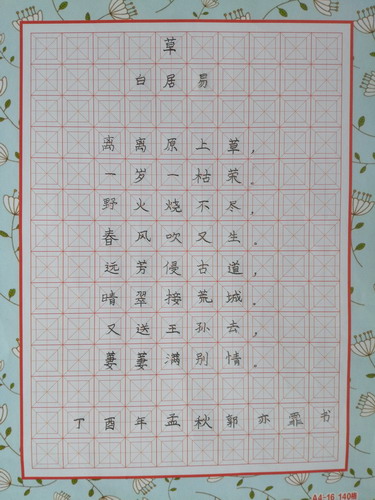 草
白居易
离离原上草，
一岁一枯荣。
野火烧不尽，
春风吹又生。
远芳侵古道，
晴翠接荒城。
又送王孙去，
萋萋满别情。
丁酉年孟秋郭亦霏书
A4-16 140格